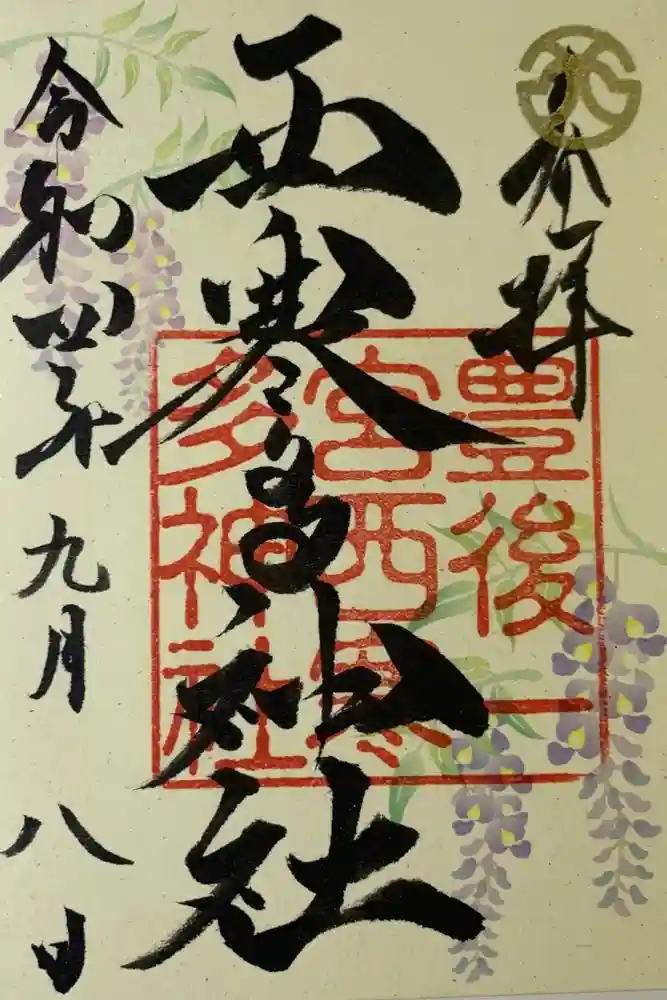 奉拝
西寒多神社
令和四年九月八日
豊後一
宮西寒
多神社